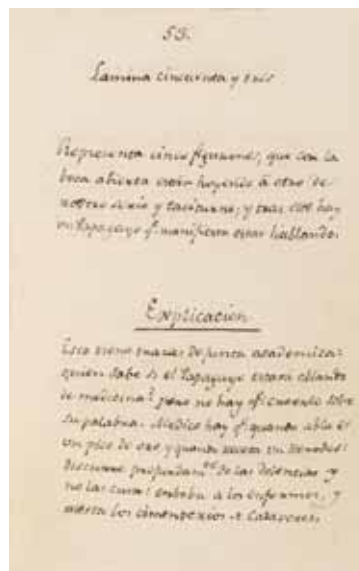 53.
Lamina cincuenta y tres
Representa cinco figurones, que con la
boca abierta estan hoyendo á otro de
rostro serio y taciturno, y tras este hay
un Papagayo qe. manifiesta estar hablando.
Explicacion
Esto tiene trazas de junta academica:
quien sabe si el Papagayo estara hablando
de medicina? pero no hay qe. creerle sobre
su palabra. Medico hay qe. quando abla es
un pico de oro y quando receta un Herodes:
discurre profundamte. de las dolencias y
no las cura: emboba a los enfermos, y
los cimenterios de Calaveras.